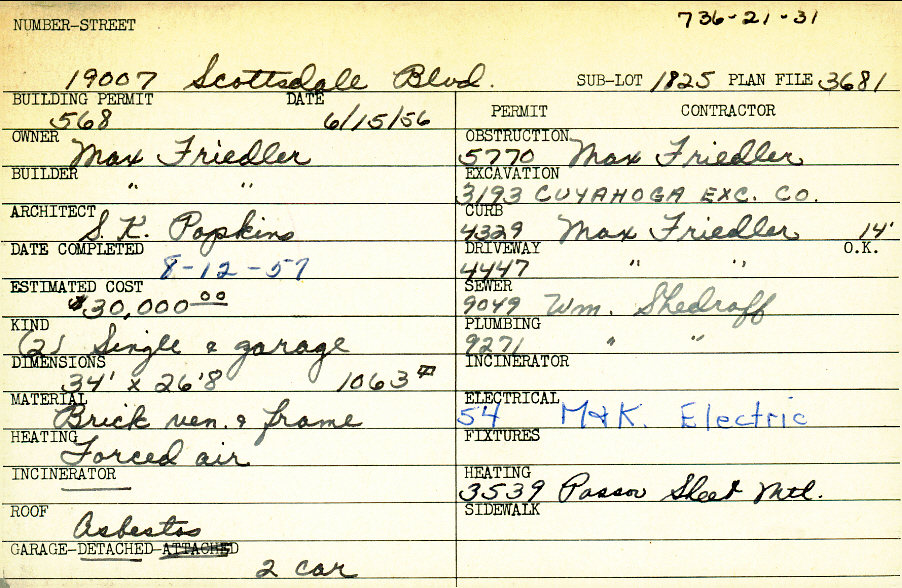 NUMBER-STREET
736-21-31
19007 Scottsdale Blvd. SUB-LOT 1825 PLAN FILE 3681
BUILDING PERMIT DATE
568 6/15/56
OWNER
Max Friedler
BUILDER
" "
ARCHITECT
S. K. Popkins
DATE COMPLETED
8-12-57
ESTIMATED COST
$30,000.00
KIND
(2) Single & garage
DIMENSIONS
34' x 26'8 1063
MATERIAL
Brick ven. & frame
HEATING
Forced air
INCINERATOR
ROOF
Asbestos
GARAGE-DETACHED-ATTACHED
2 car
PERMIT CONTRACTOR
OBSTRUCTION
5770 Max Friedler
EXCAVATION
3193 CUYAHOGA EXC. CO.
CURB
4329 Max Friedler 14'
DRIVEWAY O.K.
4447 " "
SEWER
9049 Wm. Shedroff
PLUMBING
9271 " "
INCINERATOR
ELECTRICAL
54 M&K. Electric
FIXTURES
HEATING
3539 Passov Sheet Mtl.
SIDEWALK